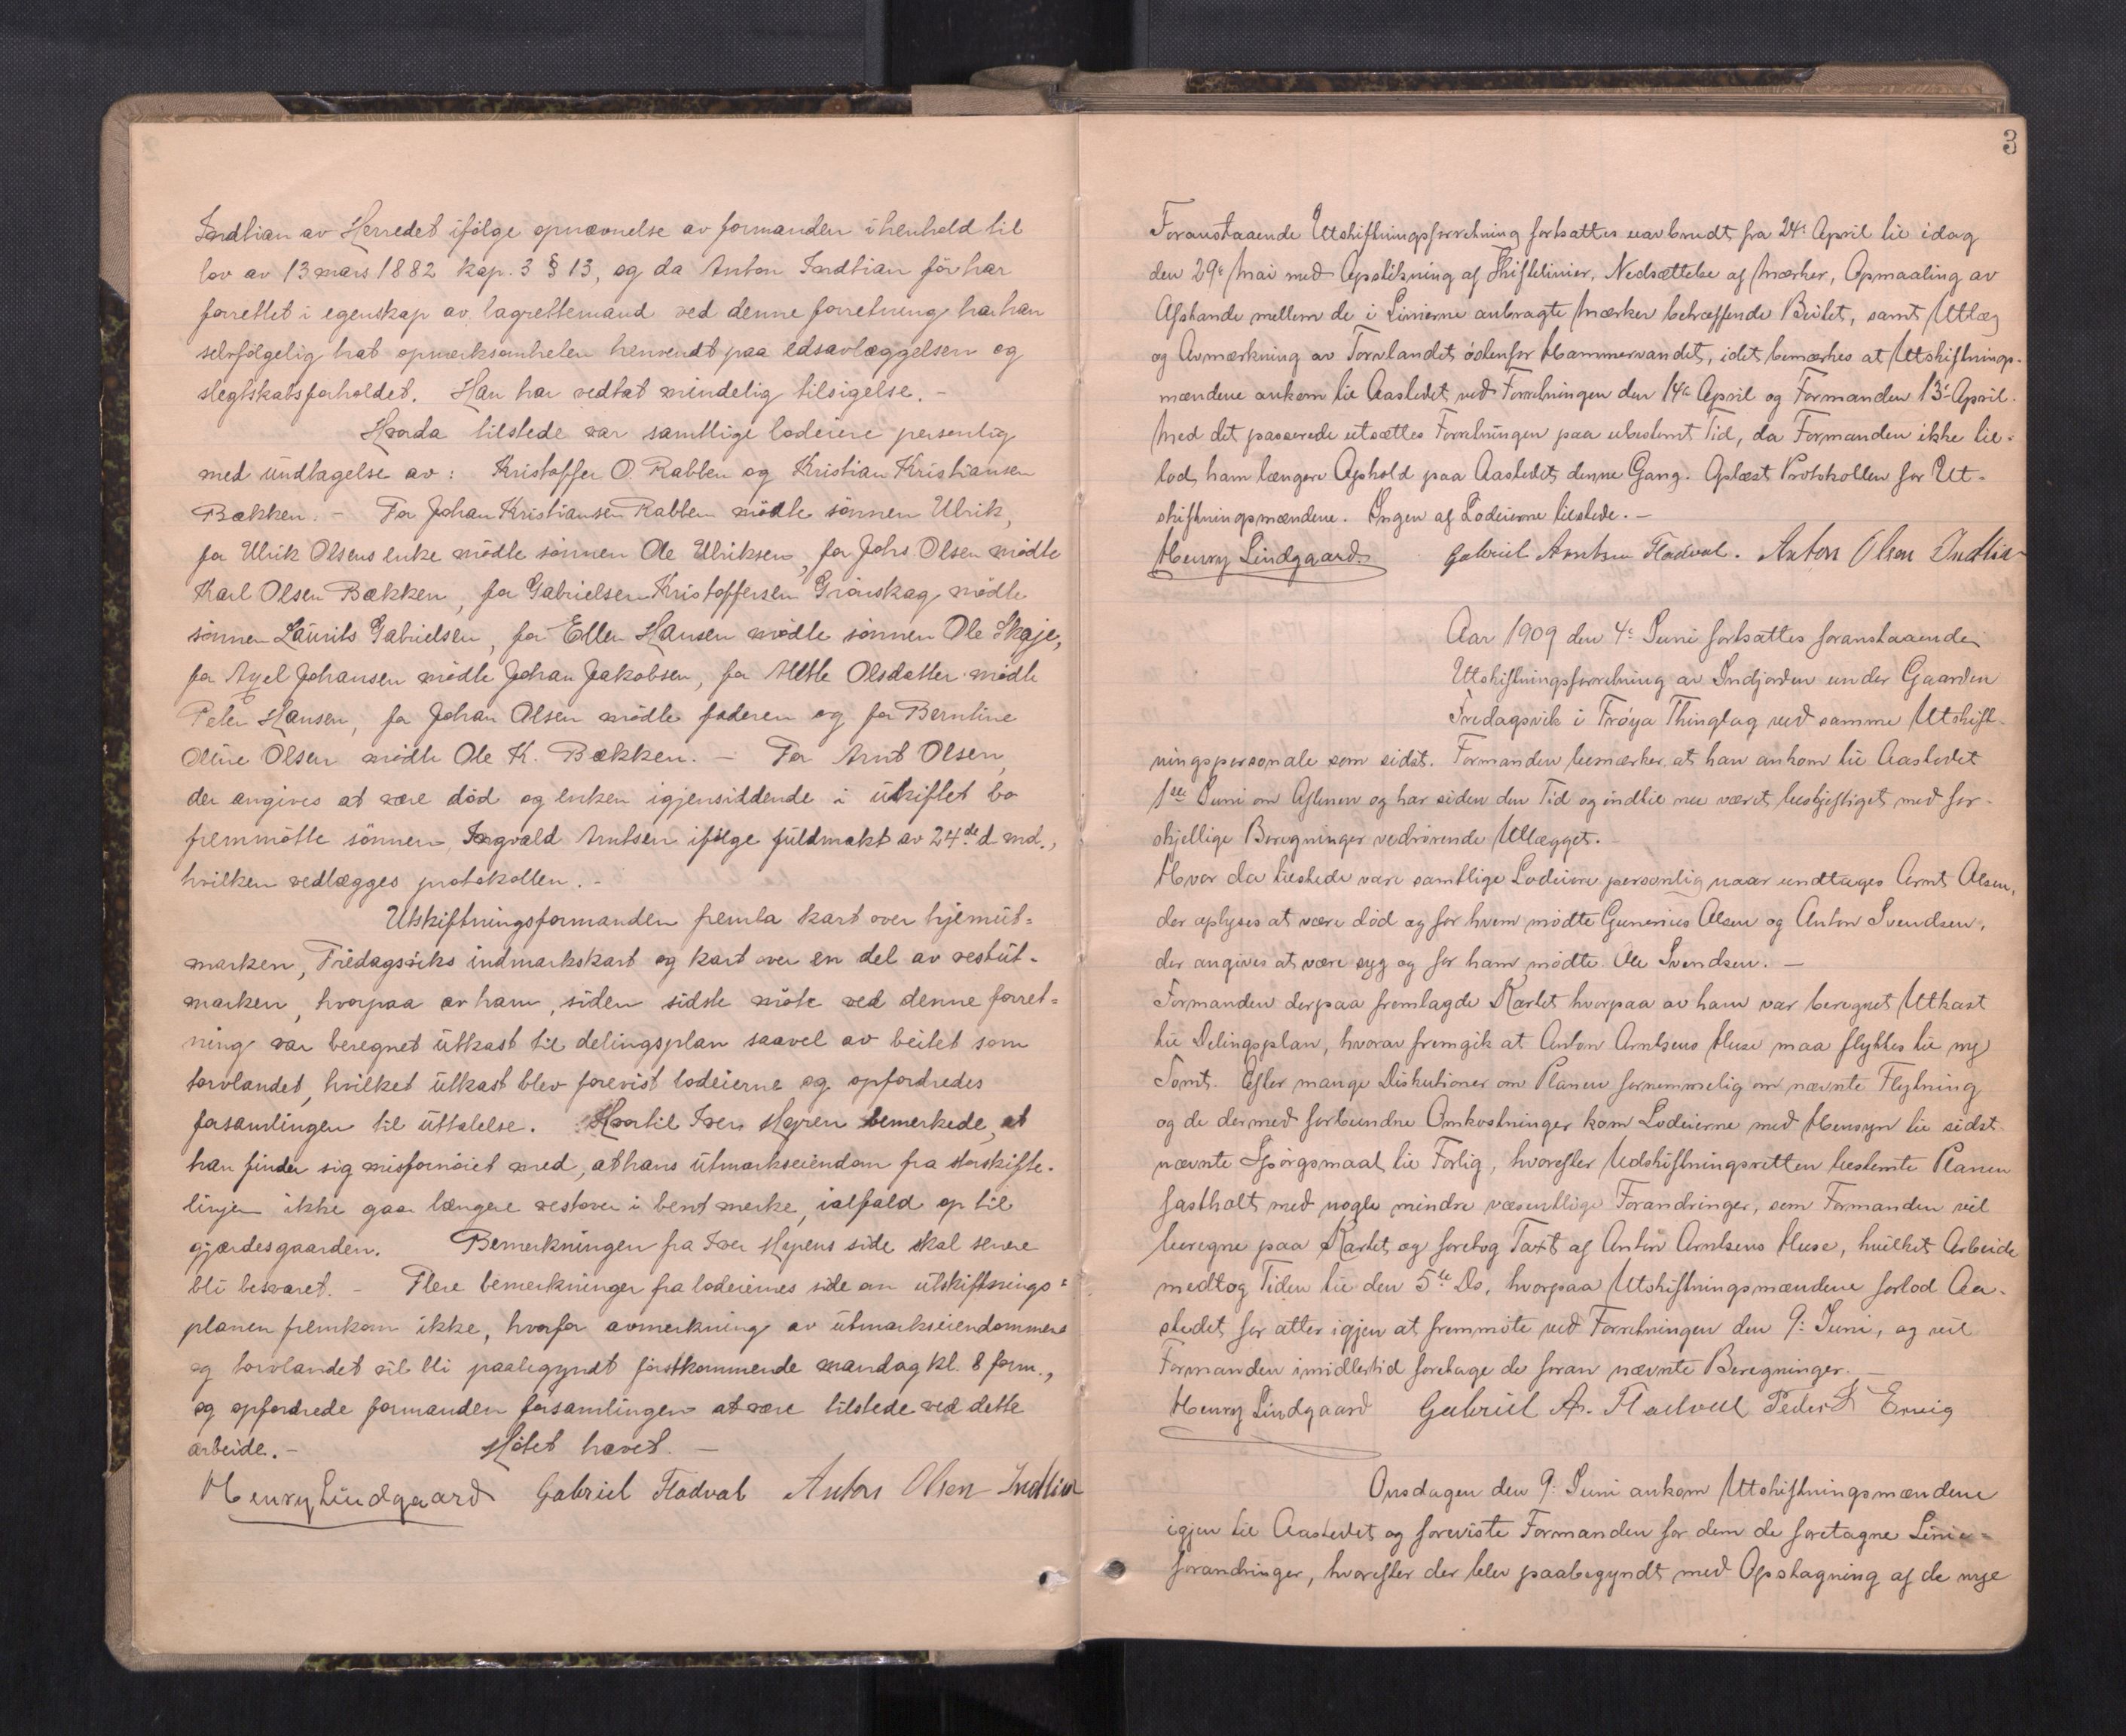 Indtian av Herredet ifølge opnævnelse av formanden i henhold til
lov av 13 mars 1882 kap. 3 § 13, og da Anton Indtian før har
forrettet i egenskap av lagrettemand ved denne forretning har han
selvfølgelig hat opmerksomheten henvendt paa edsavlæggelsen og
slegtskabsforholdet. Han har vedtat mindelig tilsigelse. –
Hvorda tilstede var samtlige lodeiere personlig
med undtagelse av: Kristoffer O. Rabben og Kristian Kristiansen
Bækken. – For Johan Kristiansen Rabben mødte sønnen Ulrik,
for Ulrik Olsens enke mødte sønnen Ole Ulriksen, for Johs. Olsen mødte
Karl Olsen Bækken, for Gabrielsen Kristoffersen Grønskag mødte
sønnen Laurits Gabrielsen, for Ellen Hansen mødte sønnen Ole Skaje,
for Axel Johansen mødte Johan Jakobsen, for Mette Olsdatter mødte
Peter Hansen, for Johan Olsen mødte faderen og for Berntine
Oline Olsen mødte Ole K. Bækken. – For Arnt Olsen,
der angives at være død og enken igjensiddende i uskiftet bo
fremmøtte sønnen, Ingvald Arntsen ifølge fuldmakt av 24de d. md.,
hvilken vedlægges protokollen. –
Utskiftningsformanden fremla kart over hjemut=
marken, Fredagsviks indmarkskart og kart over en del av restut-
marken, hvorpaa av ham, siden sidste møte ved denne forret=
ning var beregnet utkast til delingsplan saavel av beitet som
torvlandet, hvilket utkast blev forevist lodeierne og opfordredes
forsamlingen til uttalelse. Hvortil Iver Hepen bemerkede, at
han finder sig misfornøiet med, at hans utmarkseiendom fra storskifte-
linjen ikke gaar længere vestover i bent merke, ialfald op til
gjærdesgaarden. Bemerkningen fra Iver Hepens side skal senere
bli besvaret. – Flere bemerkninger fra lodeiernes side om utskiftnings=
planen fremkom ikke, hvorfor avmerkning av utmarkseiendommene
og torvlandet vil bli paabegyndt førstkommende mandag kl. 8 form.,
og opfordrede formanden forsamlingen at være tilstede ved dette
arbeide. – Møtet hævet. –
Henry Lindgaard Gabriel Fladval Anton Olsen Indtian
3
Foranstaaende Utskiftningsforretning fortsattes uavbrudt fra 24e April til idag
den 29e Mai med Opstikning af Skiftelinier, Nedsættelse af Mærker, Opmaaling av
Afstande mellem de i Linierne anbragte Mærker betræffende Beitet, samt Utlæg
og Avmærkning av Torvlandet østenfor Hammervandet, idet bemærkes at Utskiftnings-
mændene ankom til Aastedet ved Forretningen den 14e April og Formanden 13e April.
Med det passerede utsættes Forretningen paa ubestemt Tid, da Formanden ikke til-
lod ham længere Ophold paa Aastedet denne Gang. Oplæst Protokollen for Ut-
skiftningsmændene. Ingen af Lodeierne tilstede. –
Henry Lindgaard Gabriel Arntsen Fladval. Anton Olsen Indtian
Aar 1909 den 4e Juni fortsattes foranstaaende
Utskiftningsforretning av Indjorden under Gaarden
Fredagsvik i Frøya Thinglag ved samme Utskift-
ningspersonale som sidst. Formanden bemærker, at han ankom til Aastedet
1ste Juni om Aftenen og har siden den Tid og indtil nu været beskjeftiget med for-
skjellige Beregninger vedrørende Utlægget.
Hvor da tilstede vare samtlige Lodeiere personlig naar undtages Arnt Olsen,
der oplyses at være død og for hvem mødte Gunerius Olsen og Anton Svendsen,
der angives at være syg og for ham mødte Ole Svendsen. –
Formanden derpaa fremlagde Kartet hvorpaa av ham var beregnet Utkast
til Delingsplan, hvorav fremgik at Anton Arntsens Huse maa flyttes til ny
Tomt. Efter mange Diskutioner om Planen fornemmelig om nævnte Flytning
og de dermed forbundne Omkostninger kom Lodeierne med Hensyn til sidst
nævnte Spørgsmaal til Forlig, hvorefter Udskiftningsretten bestemte Planen
fastholt med nogle mindre væsentlige Forandringer, som Formanden vil
beregne paa Kartet og foretog Taxt af Anton Arntsens Huse, hvilket Arbeide
medtog Tiden til den 5te Ds, hvorpaa Utskiftningsmændene forlod Aa-
stedet for atter igjen at fremmøte ved Forretningen den 9. Juni, og vil
Formanden imidlertid foretage de foran nævnte Beregninger. –
Henry Lindgaard Gabriel A. Fladval Peder Ervig
Onsdagen den 9. Juni ankom Utskiftningsmændene
igjen til Aastedet og foreviste Formanden for dem de foretagne Linie=
forandringer, hvorefter der blev paabegyndt med Opstagning af de nye